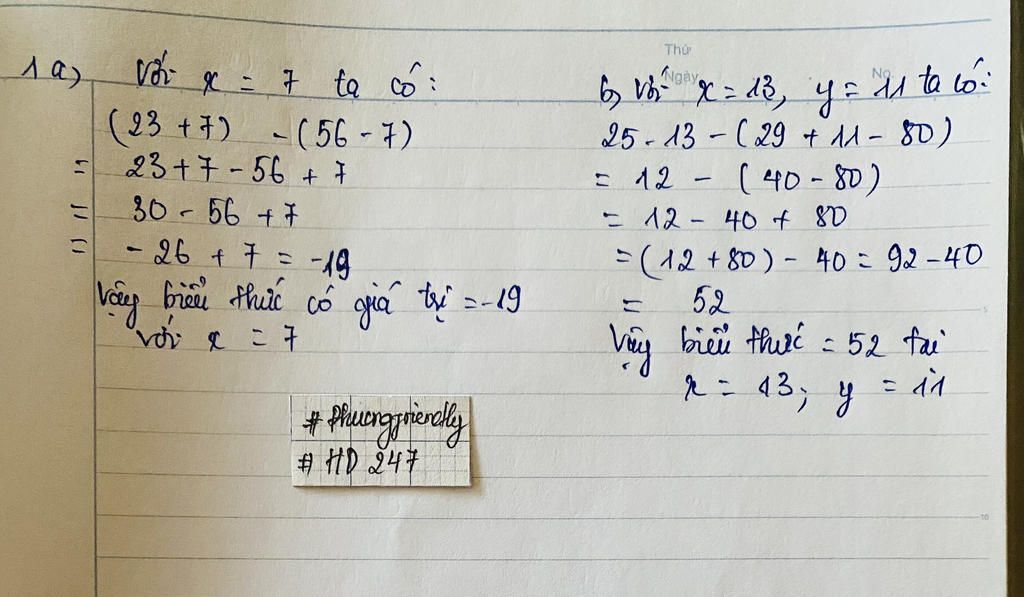 Thứ
Ngày
No.
1 a) Với x = 7 ta có:
(23 + 7) - (56 - 7)
= 23 + 7 - 56 + 7
= 30 - 56 + 7
= - 26 + 7 = -19
Vậy biểu thức có giá trị = -19
với x = 7
b, với x = 13, y = 11 ta có:
25 - 13 - (29 + 11 - 80)
= 12 - (40 - 80)
= 12 - 40 + 80
= (12 + 80) - 40 = 92 - 40
= 52
Vậy biểu thức = 52 tại
x = 13; y = 11
# Phuongfriendly
# HD 247
5
10